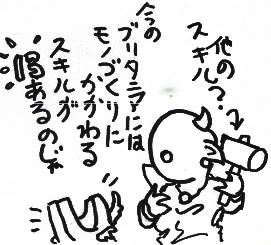 他の
スキル?
今の
ブリタニアには
モノづくりに
かかわる
スキルが
喝あるのじゃ